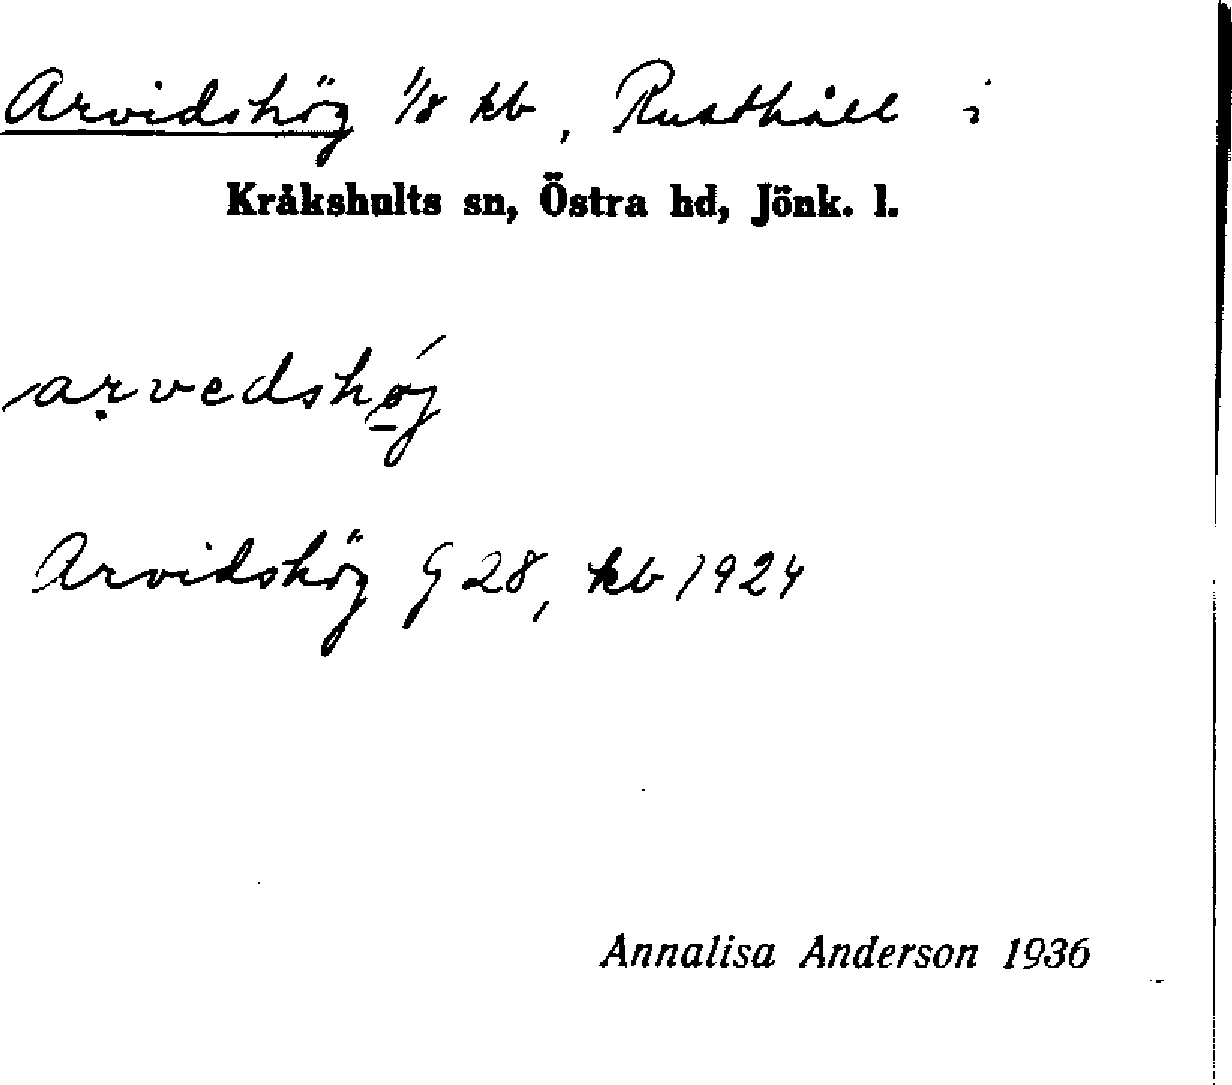 Arvidshög 1/8 kb, Rusthåll i
Kråkshults sn, Östra hd, Jönk. l.
aṛvedshǿ̱j
Arvidshög G 28, kb 1924
Annalisa Anderson 1936